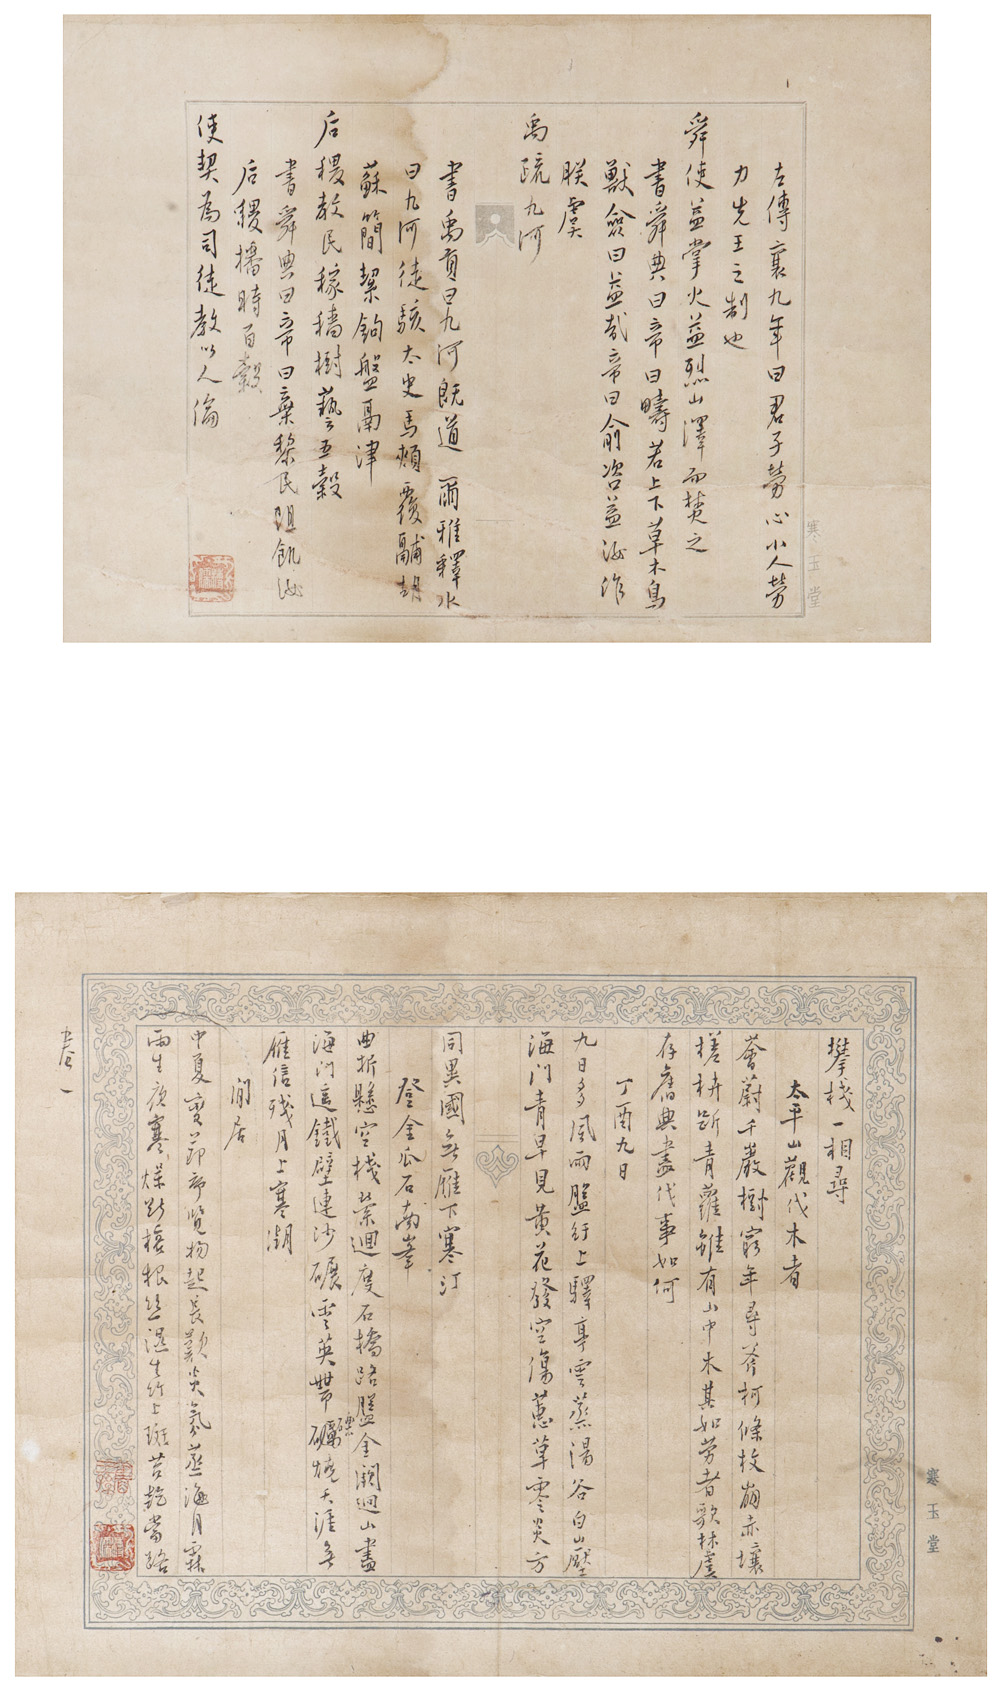 左傳襄九年曰君子勞心小人勞
力先王之制也
舜使益掌火益烈山澤而焚之
書舜典曰帝曰疇若上下草木鳥
獸僉曰益哉帝曰俞咨益汝作
朕虞
禹疏九河
書禹貢曰九河既道爾雅釋水
曰九河徒駭太史馬頰覆鬴胡
蘇簡絜鉤盤鬲津
后稷教民稼穡樹藝五穀
書舜典曰帝曰棄黎民阻飢汝
后稷播時百穀
使契為司徒教以人倫
寒玉堂
攀棧一相尋
太平山觀伐木者
薈蔚千巖樹窮年尋斧柯條枚崩赤壤
槎枿斷青蘿雖有山中木其如勞者歌林虞
存舊典盡伐事如何
丁酉九日
九日多風雨盤紆上驛亭雲蒸湯谷白山壓
海門青早見黃花發空傷蕙草零炎方
同異國無雁下寒汀
登金瓜石南峯
曲折懸空棧縈迴度石橋路盤金闕迴山盡
海門遙鐵壁連沙礪雲英帶礪燒天涯無
雁信殘月上寒潮
閒居
中夏變節序覽物起長歎炎氛蒸海月霖
雨生夜寒爍斷積根絲濕生竹上斑苔乾當路
卷一
寒玉堂